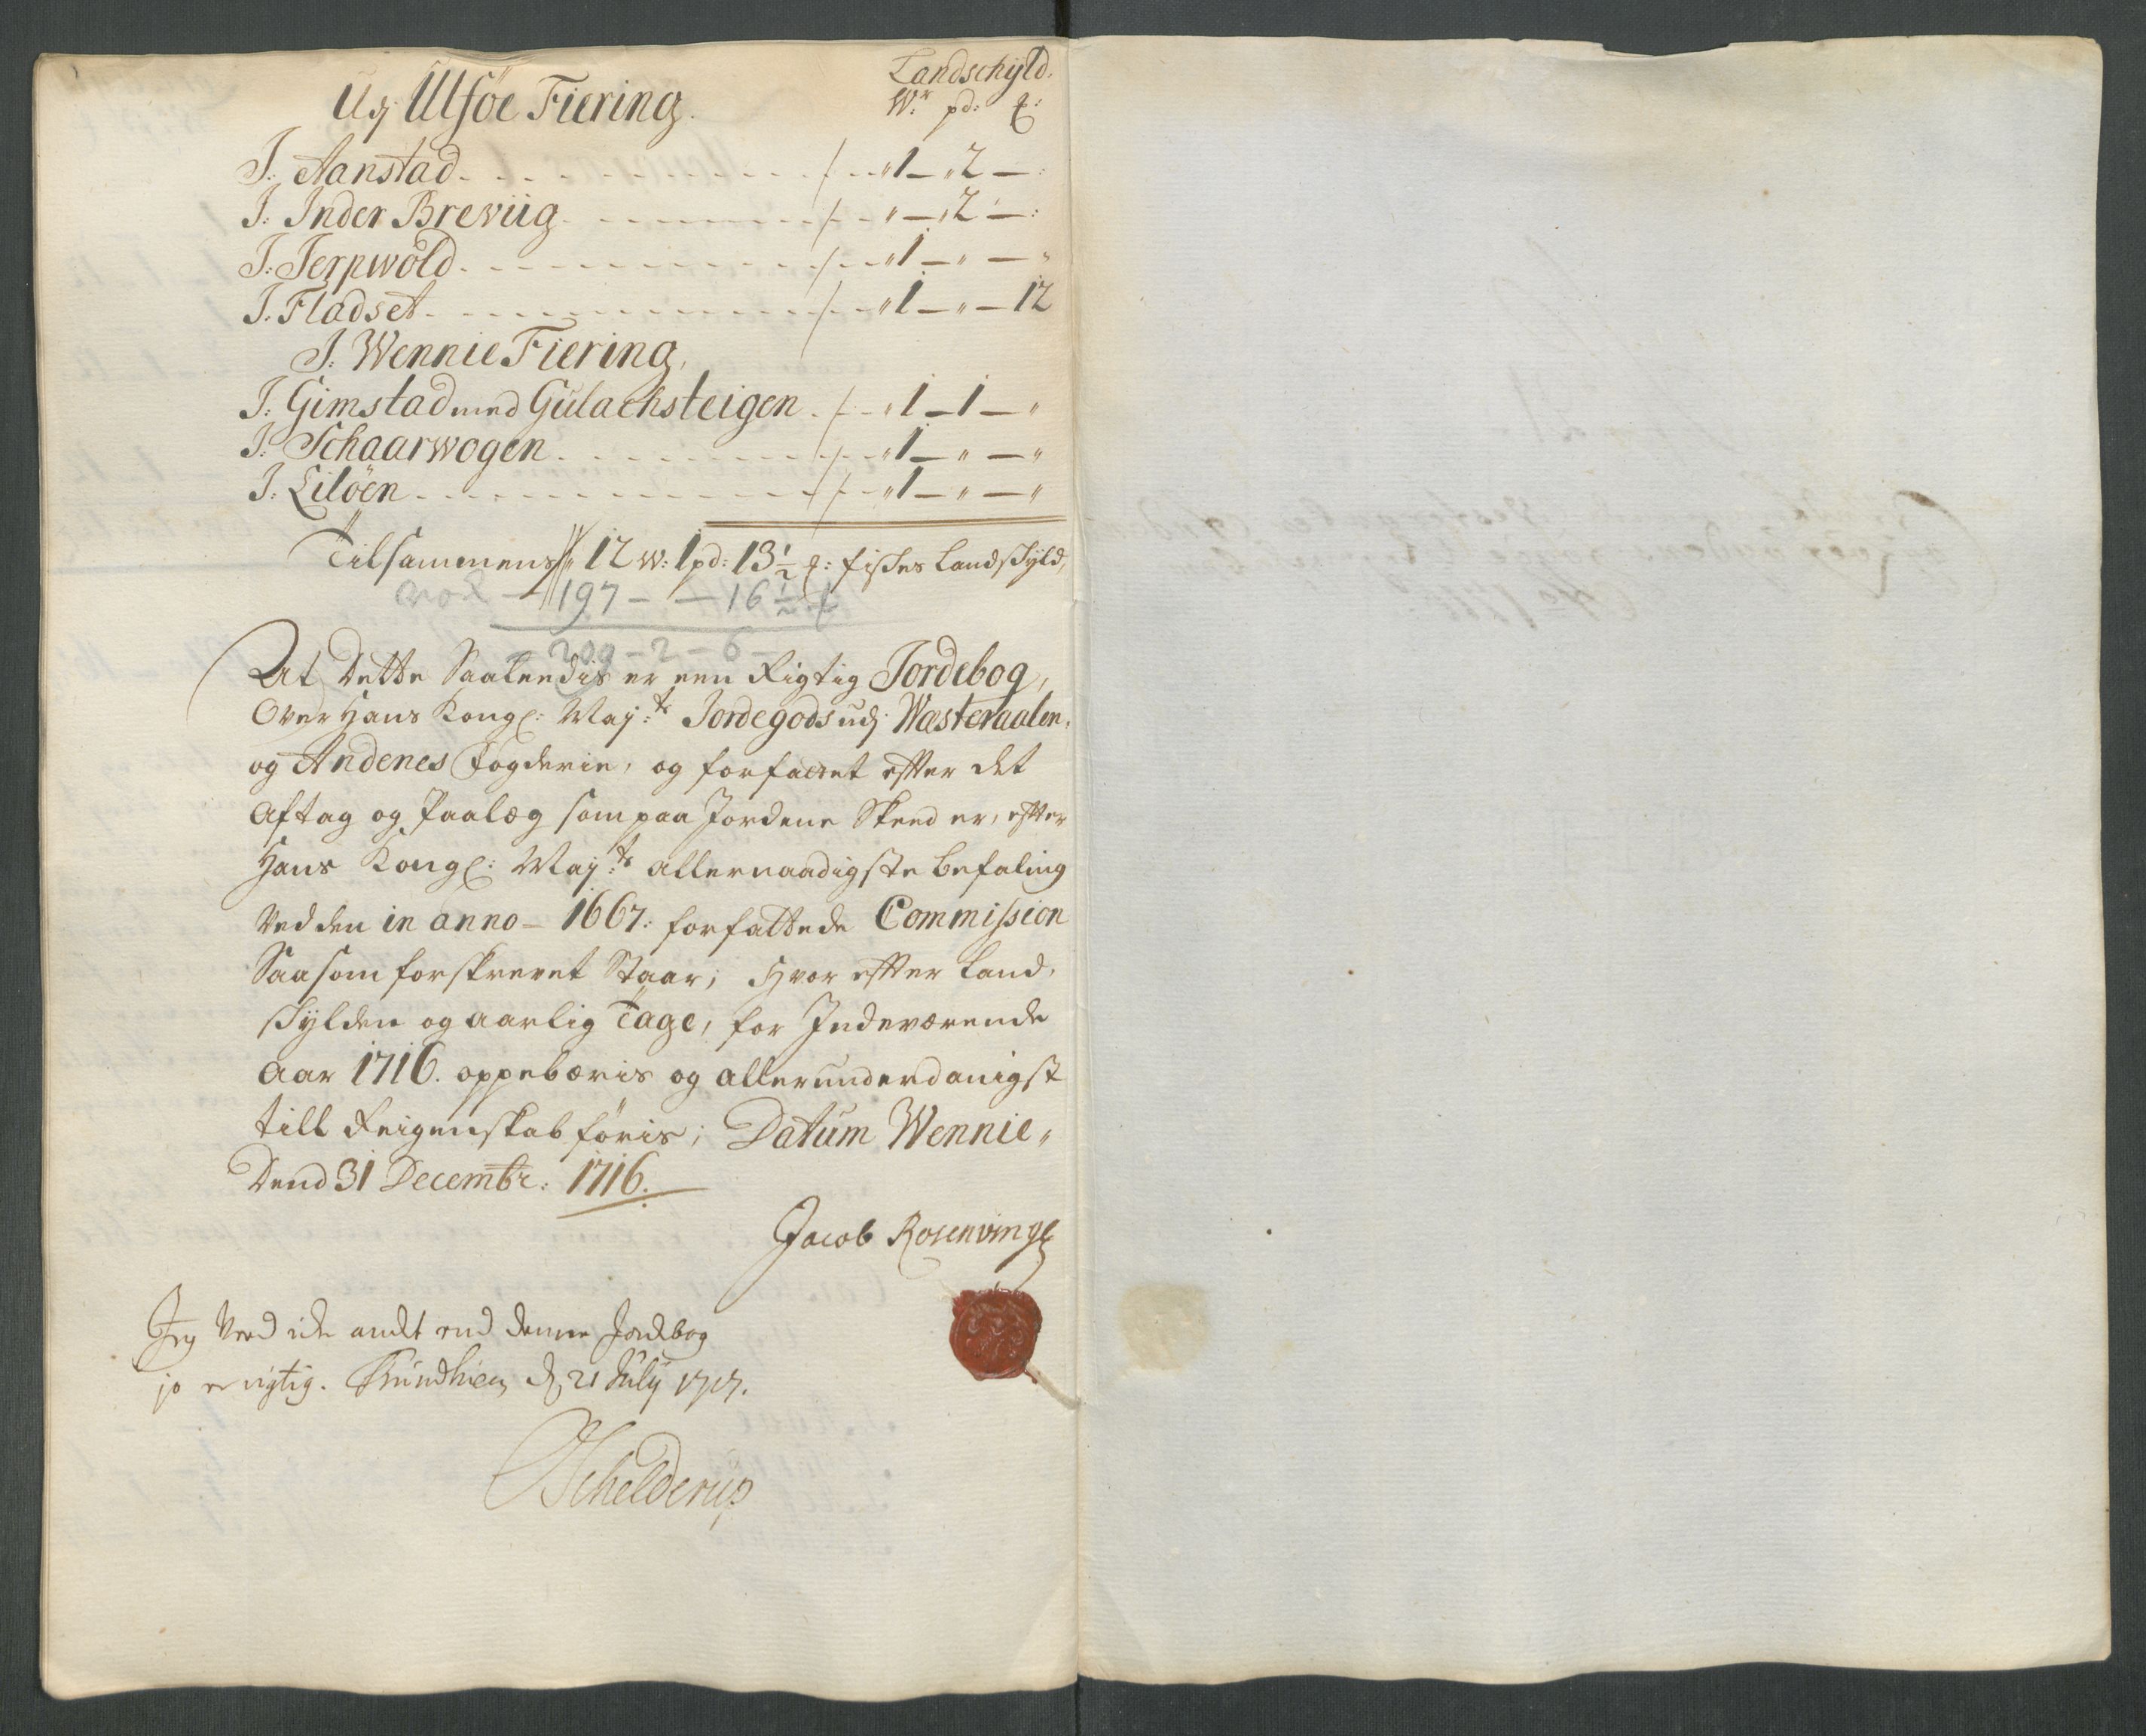 Landschyld.
Udj Ulföe Fiering.
W: pd: ℔:
J: Aanstad - - - /- - " 1 - " 2 - :
J: Inder Breviig - - - /- - " - " 2 - :
J: Jerpwold - - - /- - " 1 - " - "
J: Fladset - - - /- - " 1 - " - 12
J: Wennie Fiering,
J: Gimstad med Gulachsteigen - /- - " 1 - 1 - "
J: Schaarwogen - - - /- - " 1 - " - "
J: Lilöen - - - /- - " 1 - " - "
Tilsammens // 12 w: 1 pd: 13 1/2 ℔: fiskes Landskyld,
197 - - 16 1/2 ℔
209 - 2 - 6 -
At Dette Saaleedis er een Rigtig Jordebog,
Over Hans Kongl: Maj:ts Jordegods udj Wæsteraalen
og Andenes Fogderie, og forfattet effter det
Aftag og Paalæg som paa Jordene Skeed er, effter
Hans Kongl: Maj:ts allernaadigste befaling
Ved den in anno - 1667: forfattede Commission
Saasom forskrevet Staar; Hvor effter Land,
skylden og aarlig Tage, for Indeværende
Aar 1716. oppebæris og allerunderdanigst
till Reigenskab föris; Datum Wennie,,
Dend 31 Decembr: 1716.
Jacob Rosenvinge
Jeg Veed icke andt end denne Jordbog
jo er rigtig. Trundhiem d. 21 July 1717.
Schelderup